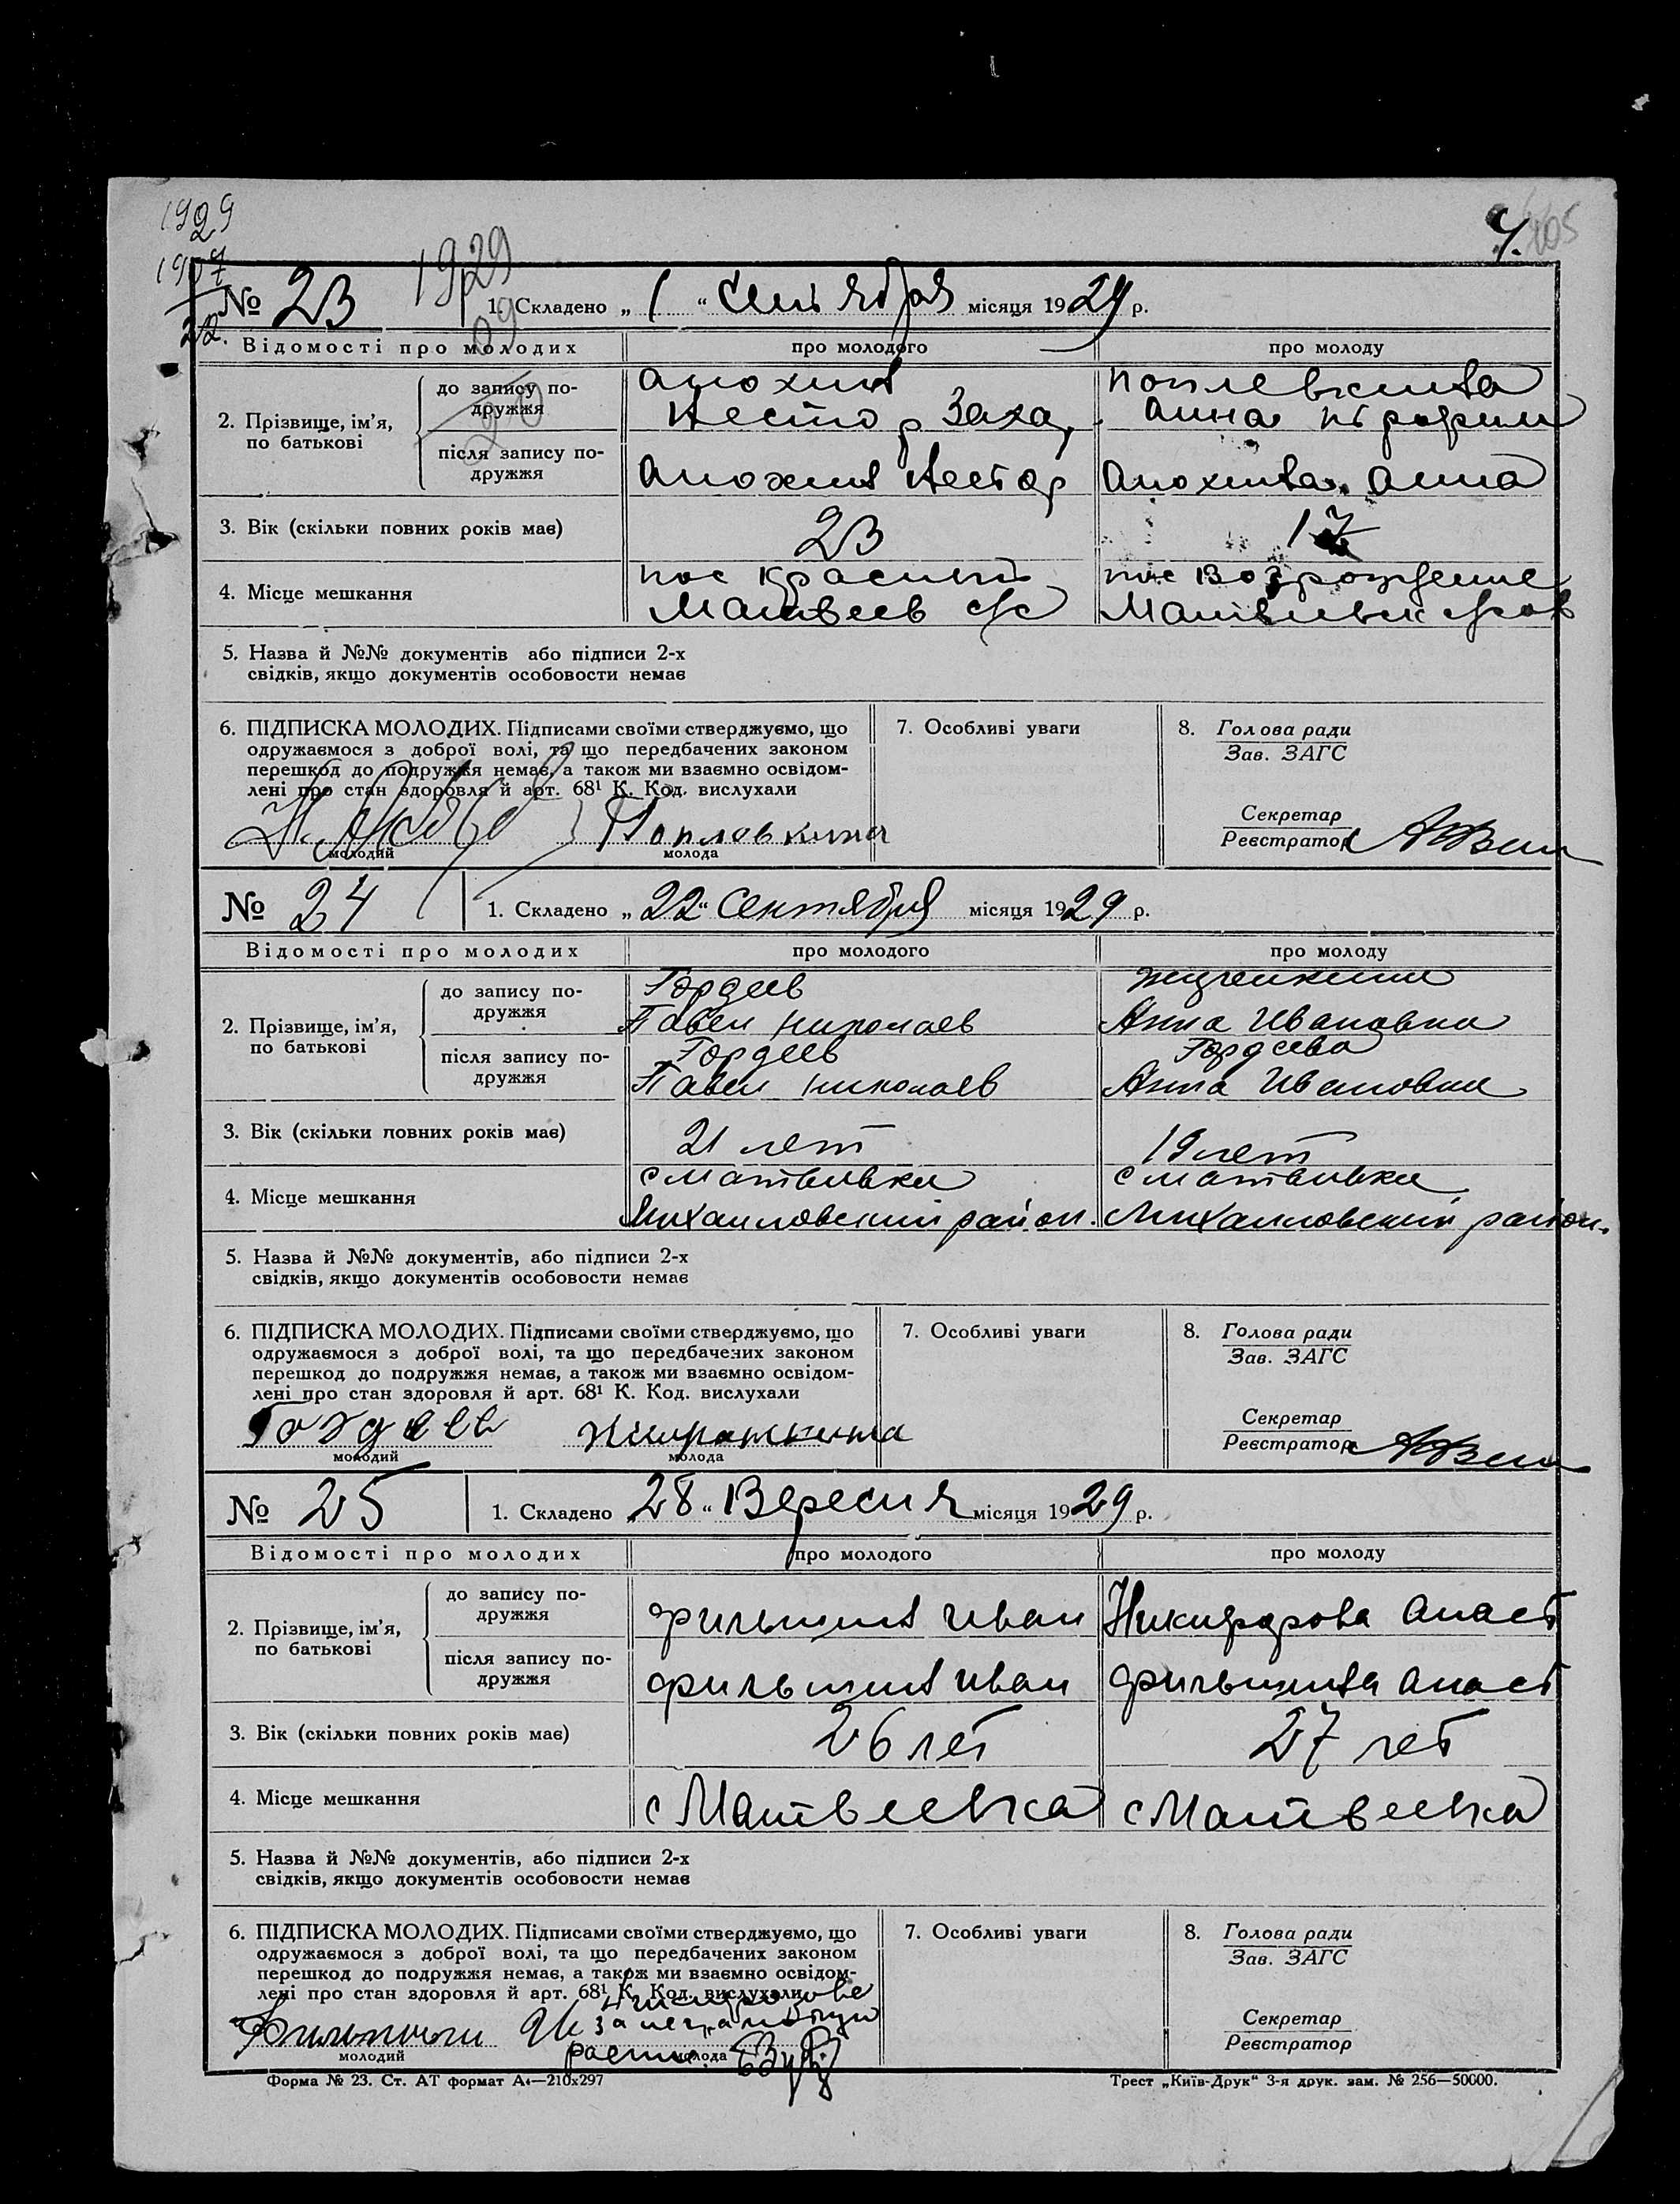 1929
1907
22.
1929
09
20
4.
105
№ 23 1. Складено „ 1 “ Сентября місяця 1929 р.
Відомості про молодих про молодого про молоду
2. Прізвище, ім’я, по батькові
до запису по-
дружжя
Анохин
Нестор Заха
Поплевкина
Анна
після запису по-
дружжя
Анохин Нестор
Анохина Анна
3. Вік (скільки повних років має) 23 17
4. Місце мешкання
пос Красный
Матвеев с/с
пос Возрождение
Матвеевск
5. Назва й №№ документів або підписи 2-х
свідків, якщо документів особовости немає
6. ПІДПИСКА МОЛОДИХ. Підписами своїми стверджуємо, що
одружаємося з доброї волі, та що передбачених законом
перешкод до подружжя немає, а також ми взаємно освідом-
лені про стан здоровля й арт. 68¹ К. Код. вислухали
Поплевкина
молодий молода
7. Особливі уваги
8. Голова ради
Зав. ЗАГС
Секретар
Реєстратор
№ 24 1. Складено „ 22 “ Сентября місяця 1929 р.
Відомості про молодих про молодого про молоду
2. Прізвище, ім’я,
по батькові
до запису по-
дружжя
Гордеев
Павел Николаев
Анна Ивановна
після запису по-
дружжя
Гордеев
Павел Николаев
Гордеева
Анна Ивановна
3. Вік (скільки повних років має) 21 лет 19 лет
4. Місце мешкання
с Матвивка
Михаиловский район.
с Матвивка
Михаиловский район.
5. Назва й №№ документів, або підписи 2-х
свідків, якщо документів особовости немає
6. ПІДПИСКА МОЛОДИХ. Підписами своїми стверджуємо, що
одружаємося з доброї волі, та що передбачених законом
перешкод до подружжя немає, а також ми взаємно освідом-
лені про стан здоровля й арт. 68¹ К. Код. вислухали
Гордеев
молодий молода
7. Особливі уваги
8. Голова ради
Зав. ЗАГС
Секретар
Реєстратор
№ 25 1. Складено 28 “ Вересня місяця 1929 р.
Відомості про молодих про молодого про молоду
2. Прізвище, ім’я,
по батькові
до запису по-
дружжя
Фильшин Иван
Никифорова Анаст
після запису по-
дружжя
Фильшин Иван
Фильшина Анаст
3. Вік (скільки повних років має) 26 лет 27 лет
4. Місце мешкання с Матвеевка с Матвеевка
5. Назва й №№ документів, або підписи 2-х
свідків, якщо документів особовости немає
6. ПІДПИСКА МОЛОДИХ. Підписами своїми стверджуємо, що
одружаємося з доброї волі, та що передбачених законом
перешкод до подружжя немає, а також ми взаємно освідом-
лені про стан здоровля й арт. 68¹ К. Код. вислухали
за неграмотную
распис.
молодий молода
7. Особливі уваги
8. Голова ради
Зав. ЗАГС
Секретар
Реєстратор
Форма № 23. Ст. АТ формат А₄—210х297 Трест „Київ-Друк“ 3-я друк. зам. № 256—50000.